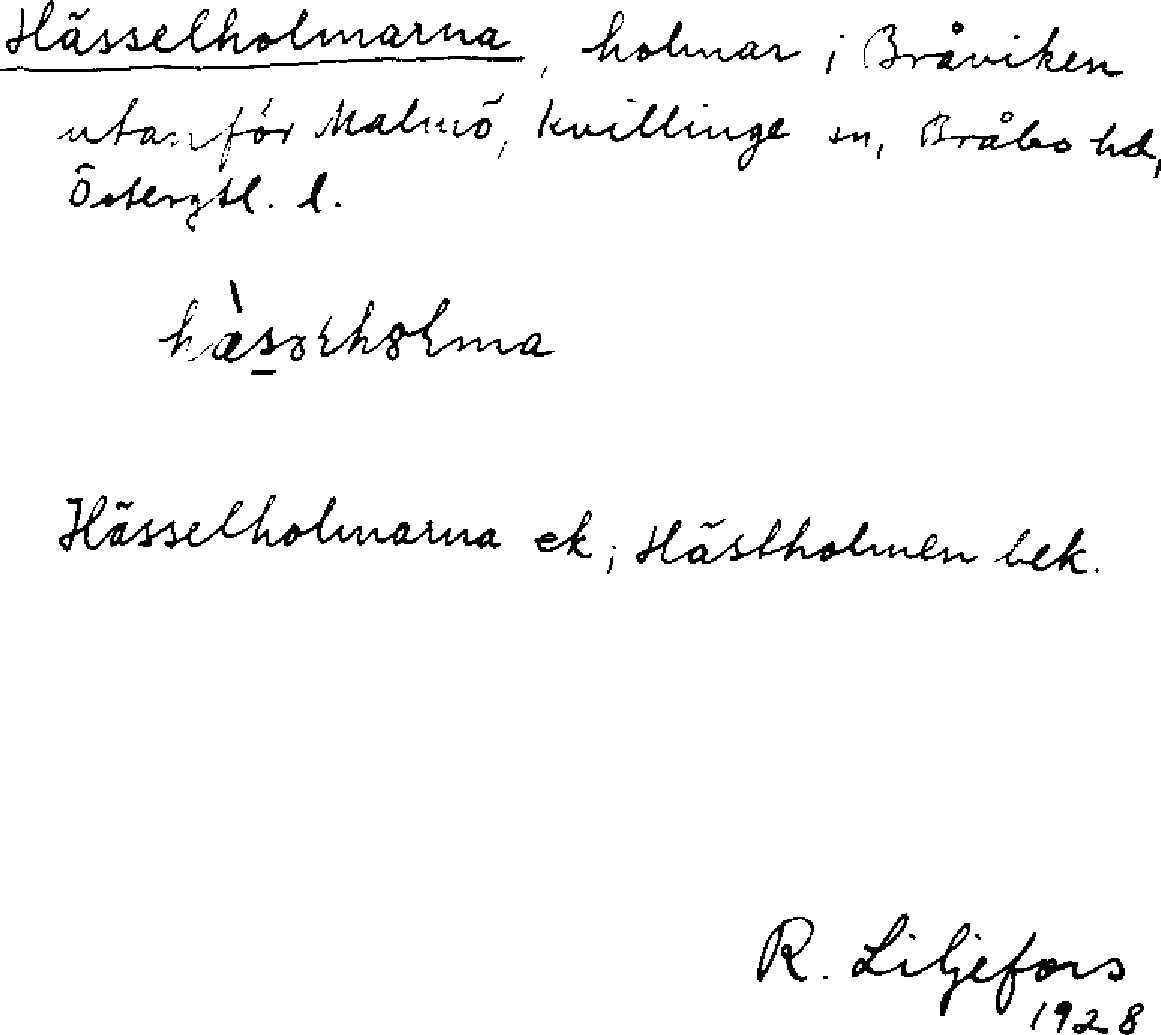 Hässelholmarna, holmar i Bråviken
utanför Malmö, Kvillinge sn, Bråbo hd,
Östergtl. l.
Hässelholmarna ek; Hästholmen bek.
R. Liljefors
1928